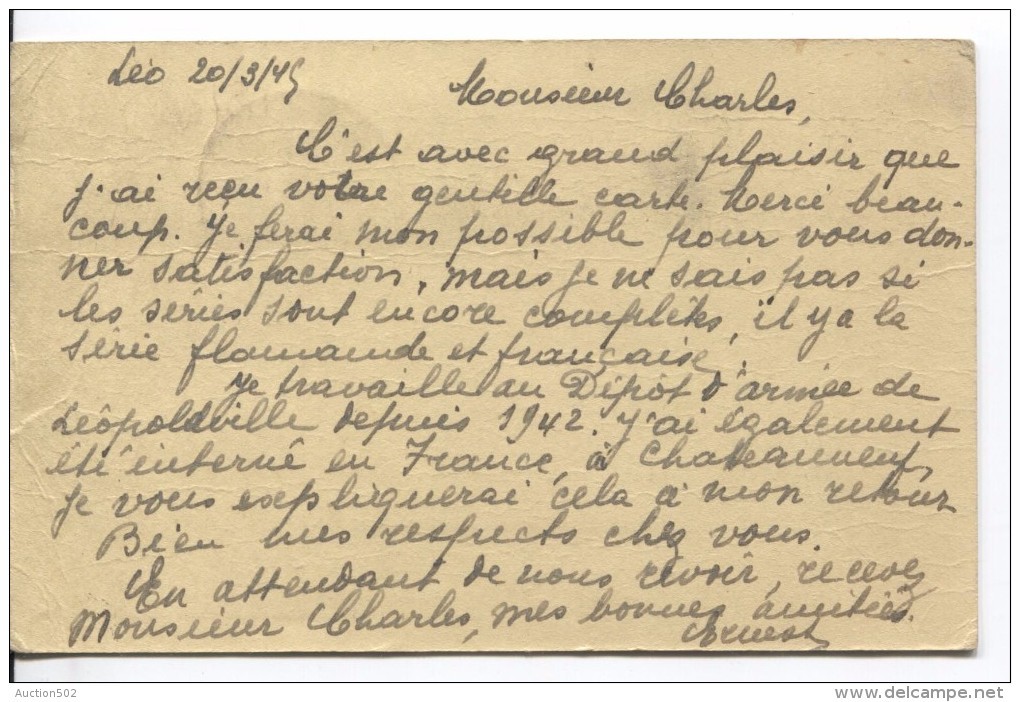 Léo 20/3/45
Monsieur Charles,
C'est avec grand plaisir que
j'ai reçu votre gentille carte. Merci beau-
coup. Je ferai mon possible pour vous don-
ner satisfaction, mais je ne sais pas si
les séries sont encore complètes, il y a la
série flamande et française.
Je travaille au Dépôt d'armée de
Léopoldville depuis 1942. J'ai également
été interné en France, à Chateauneuf,
je vous expliquerai cela à mon retour
Bien mes respects chez vous.
En attendant de nous revoir, recevez
Monsieur Charles, mes bonnes amitiés.
Ernest
Auction502
www.delcampe.net